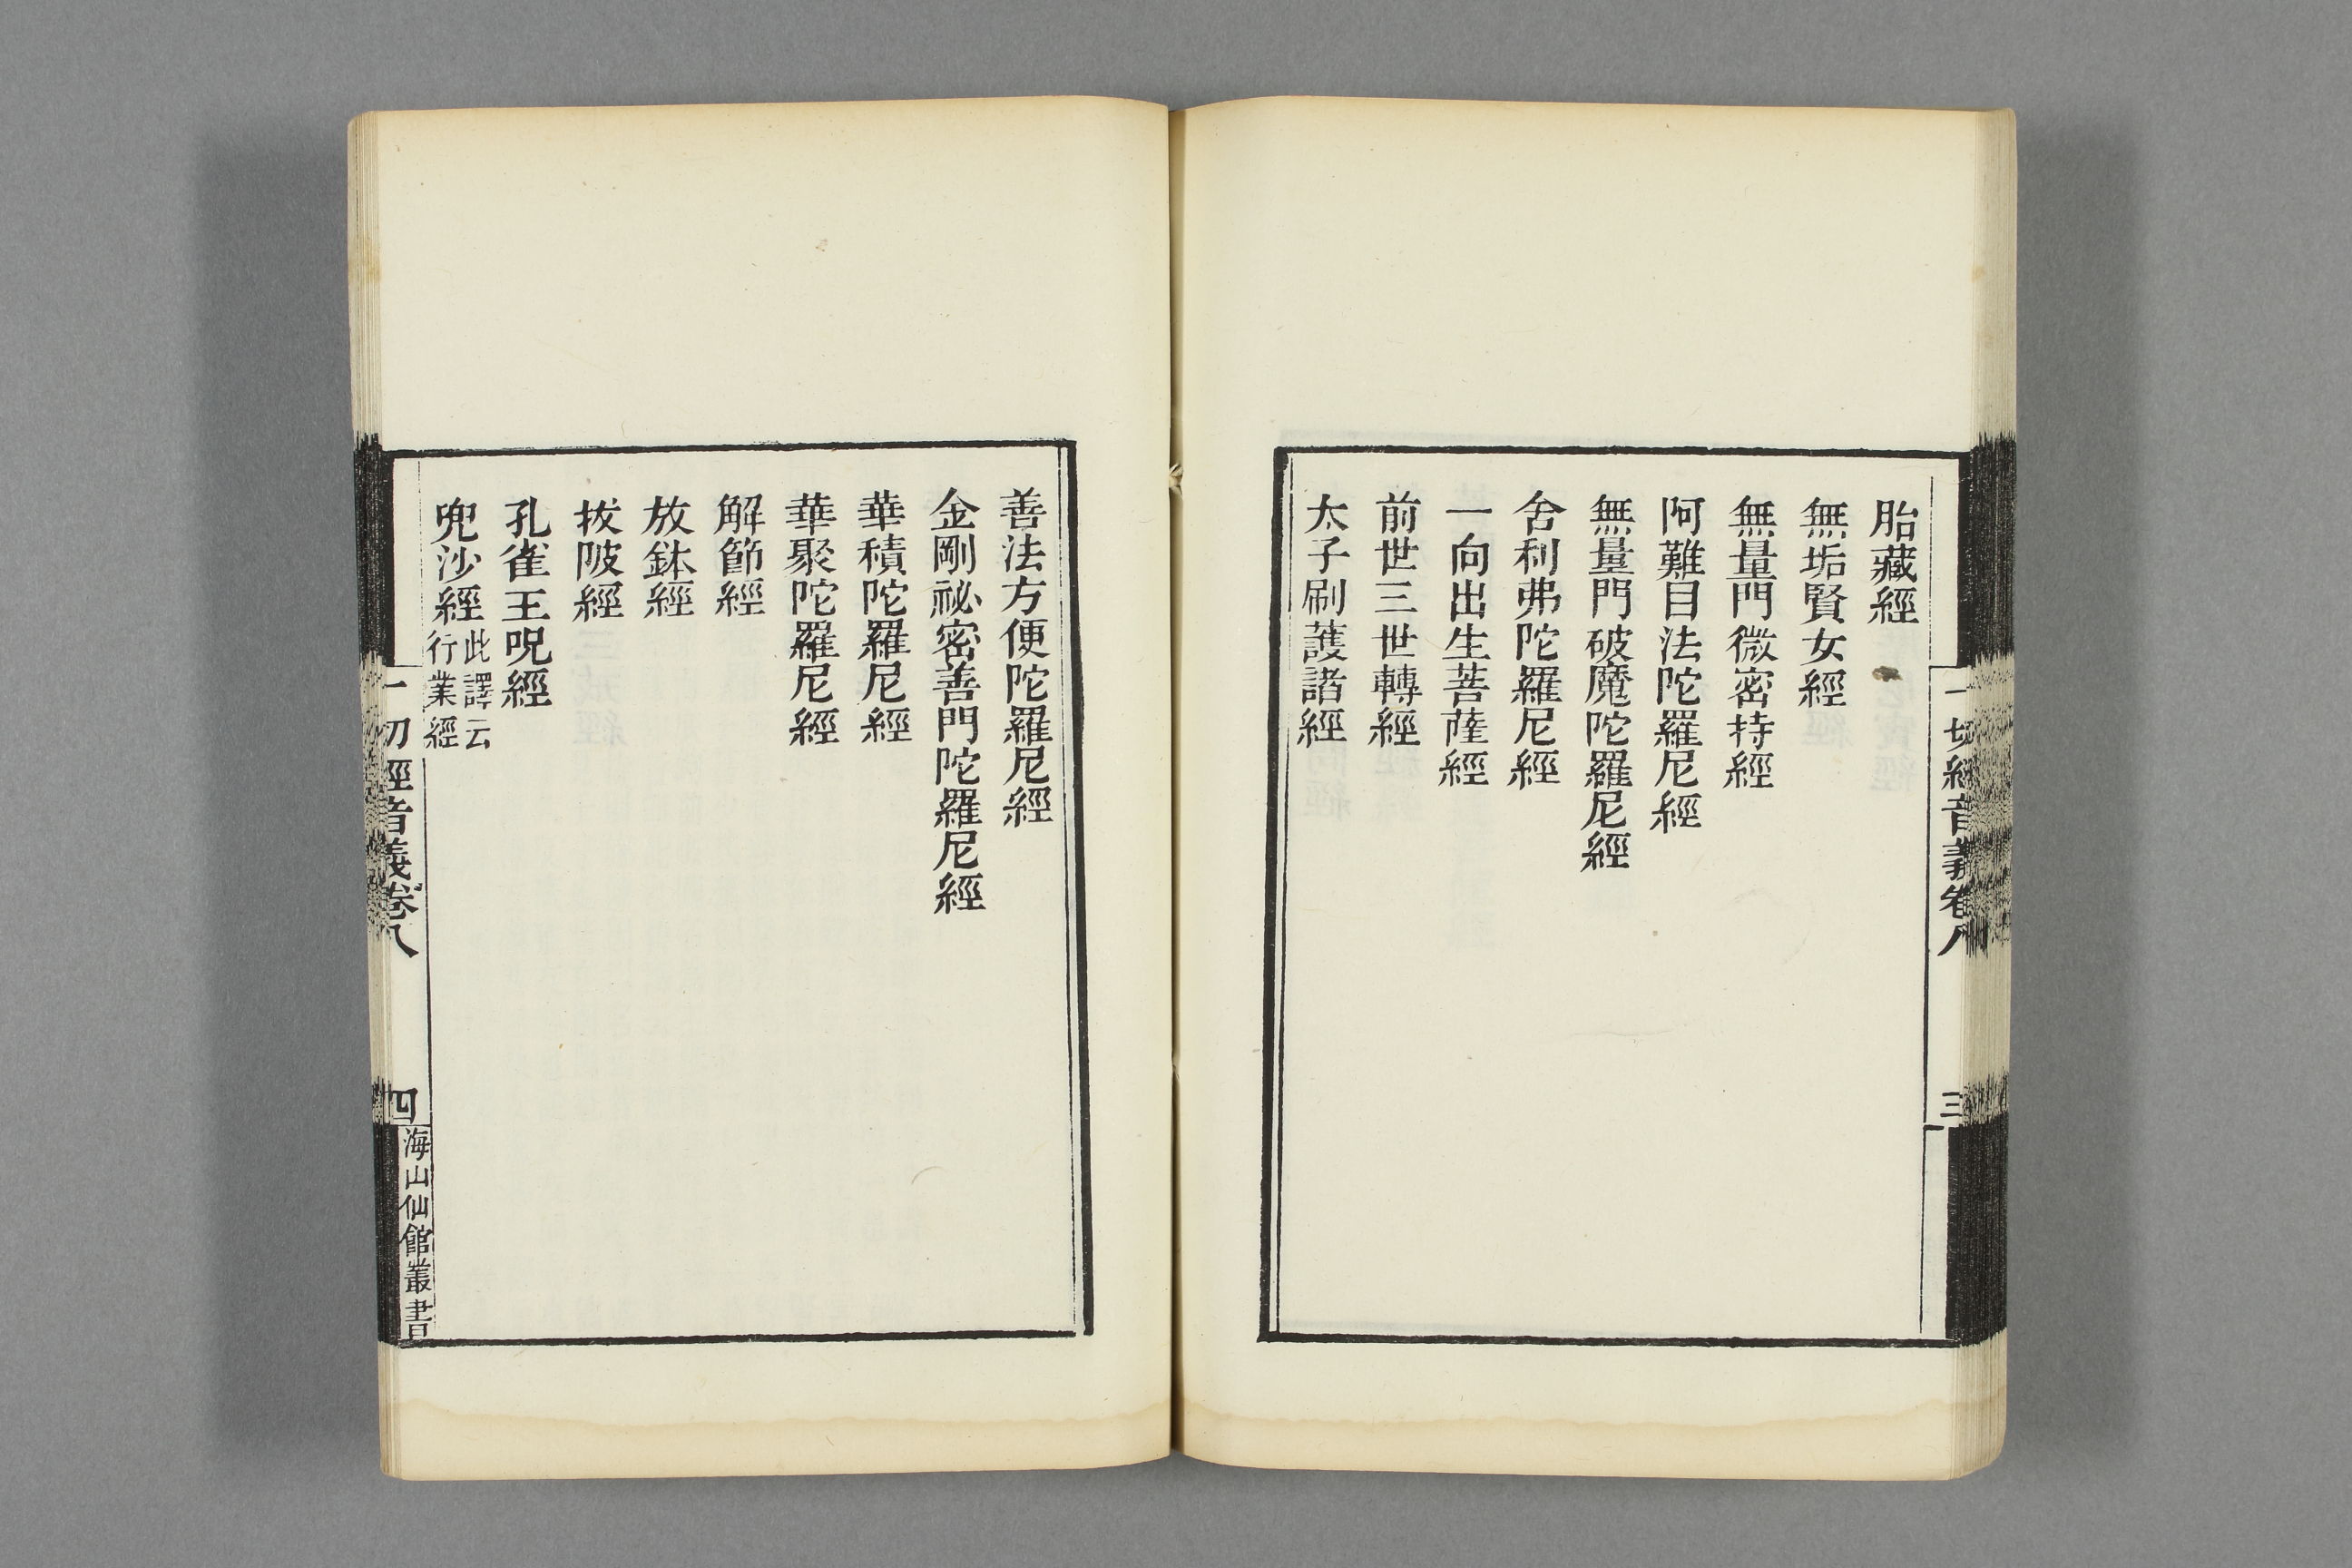 胎藏經
無垢賢女經
無量門微密持經
阿難目法陀羅尼經
無量門破魔陀羅尼經
舍利弗陀羅尼經
一向出生菩薩經
前世三世轉經
太子刷護諸經
一切經音義卷八
三
善法方便陀羅尼經
金剛祕密善門陀羅尼經
華積陀羅尼經
華聚陀羅尼經
解節經
放鉢經
拔陂經
孔雀王呪經
兜沙經此譯云
行業經
一切經音義卷八
四
海山仙館叢書